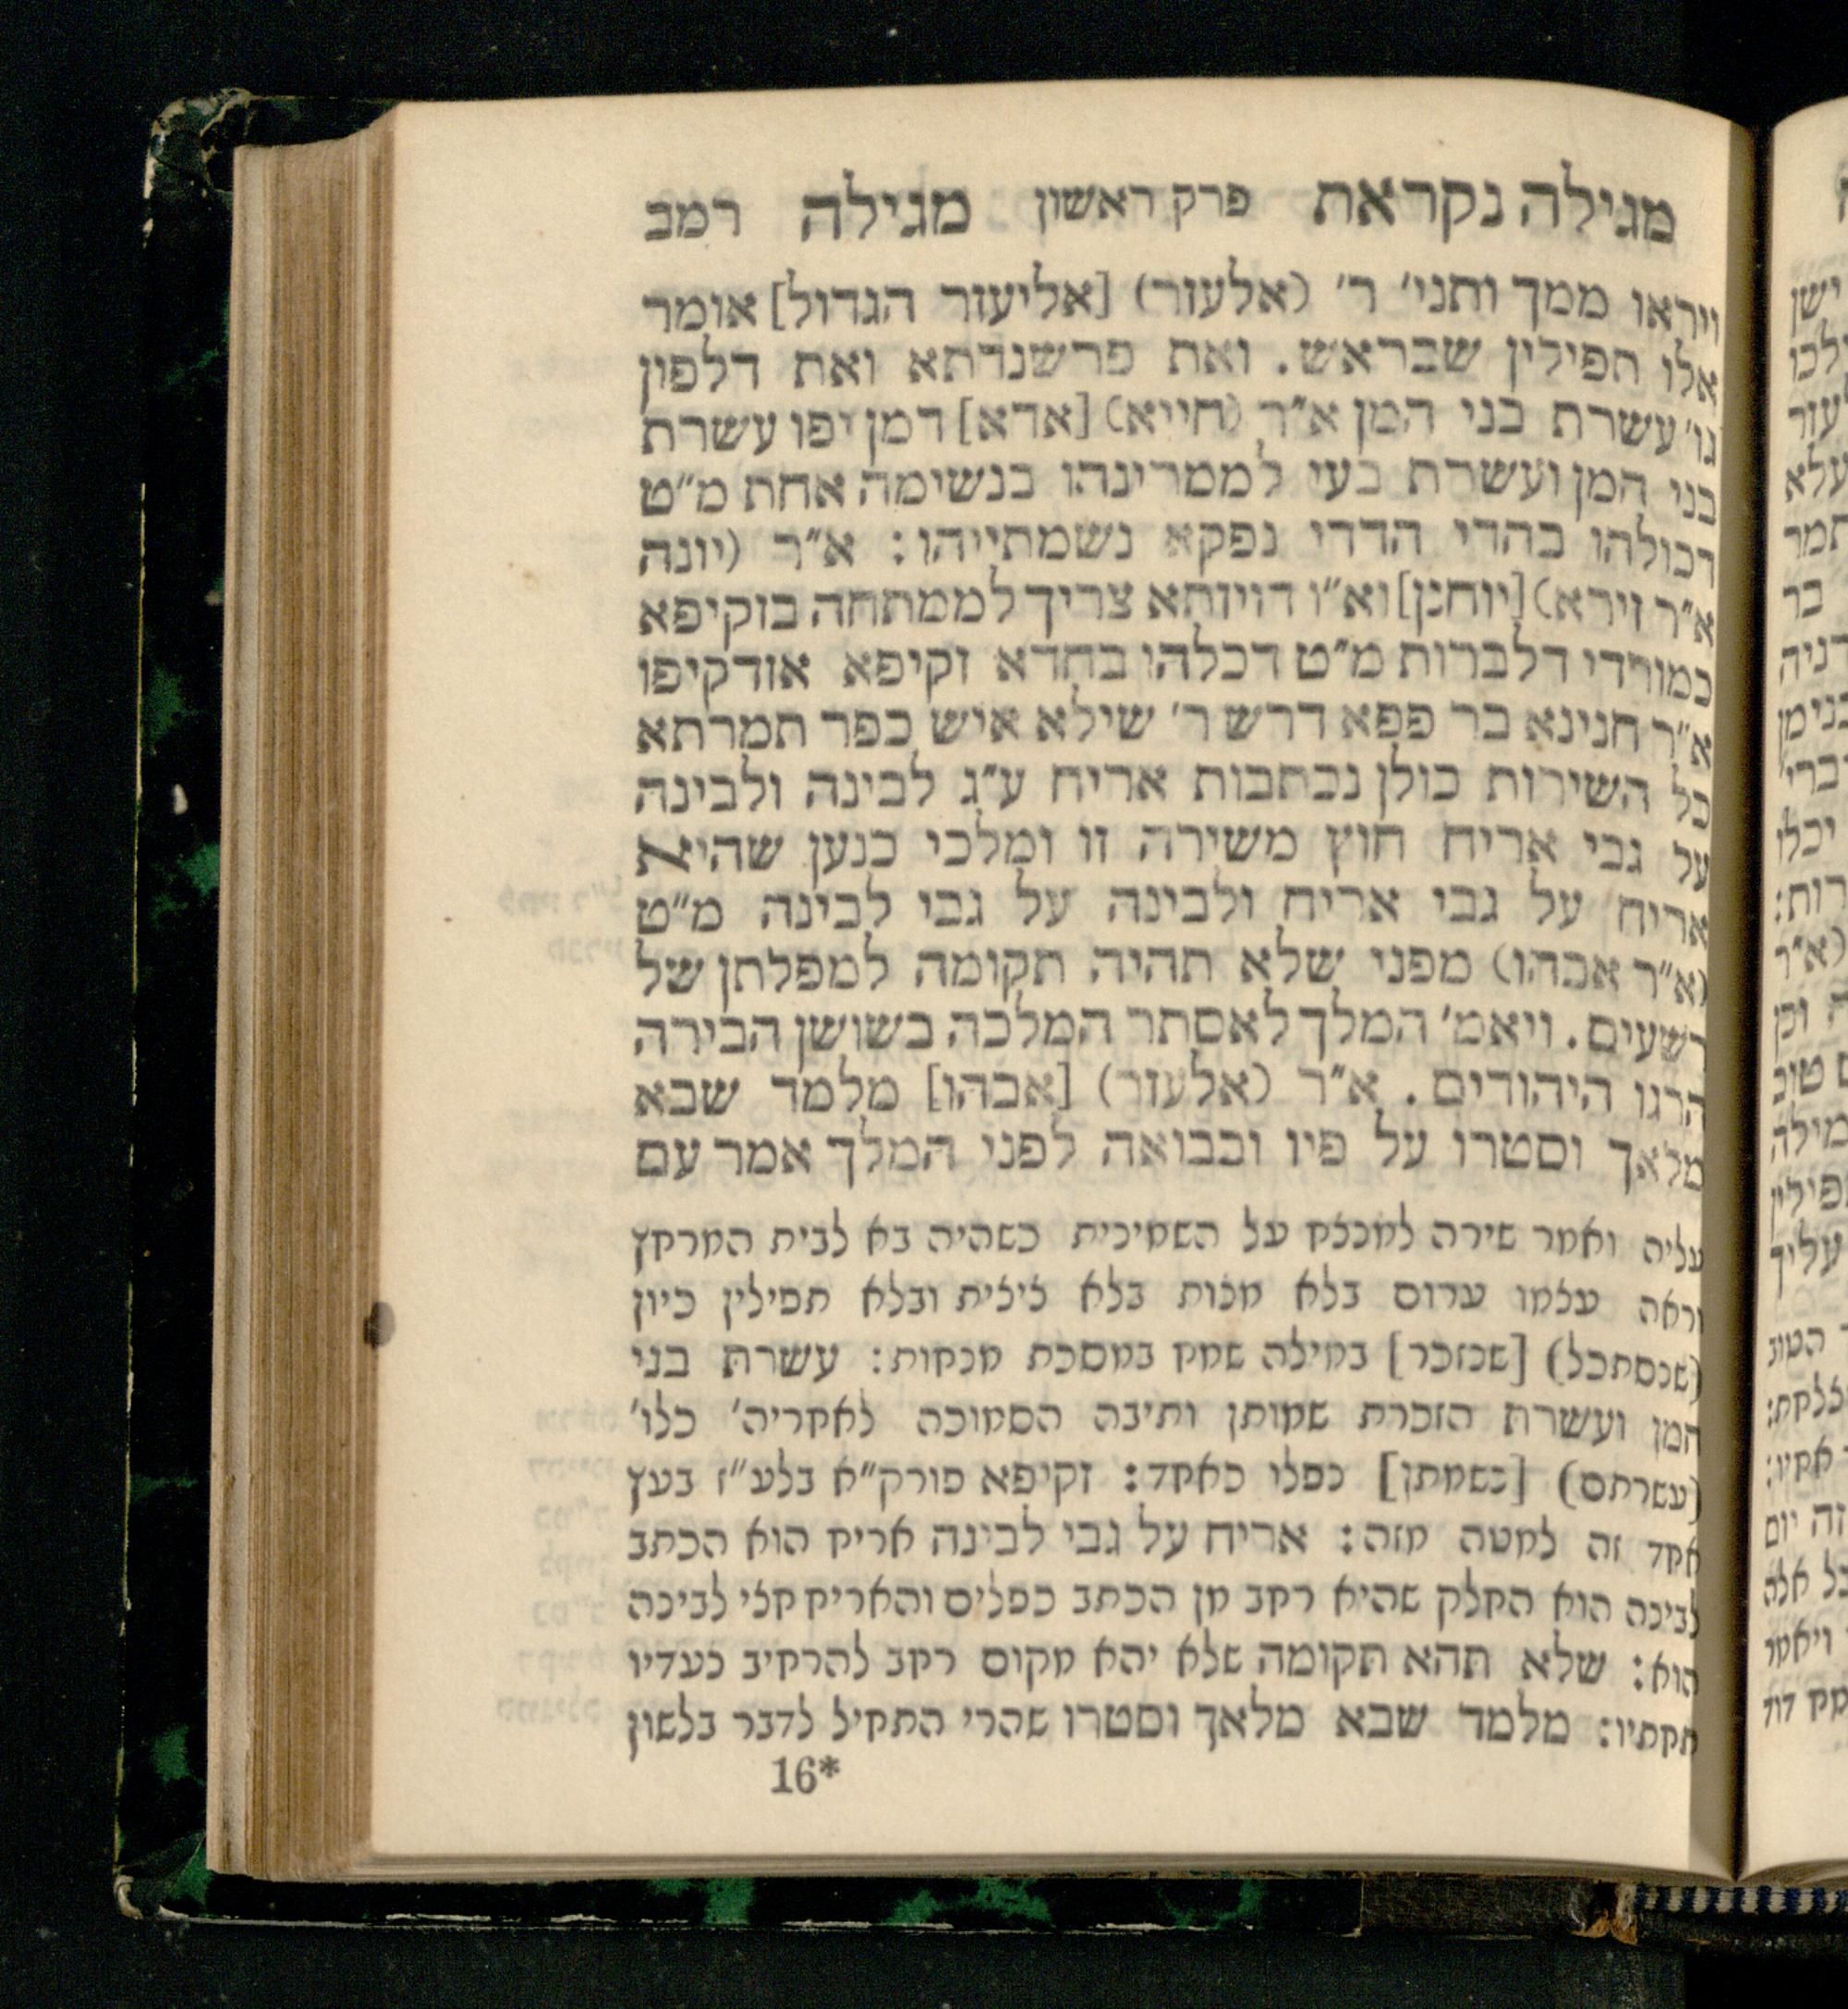 מגילה נקראת פרק ראשון מגילה רמב
ויראו ממך ותני׳ ר׳ (אלעזר) [אליעזר הגדול] אומר
אלו תפילין שבראש. ואת פרשנדתא ואת דלפון
גו׳ עשרת בני המן א״ר (חייא) [אדא] דמן יפו עשרת
בני המן ועשרת בעי לממרינהו בנשימה אחת מ״ט
דכולהו בהדי הדדי נפקא נשמתייהו: א״ר (יונה
א״ר זירא) [יוחנן] וא״ו דויזתא צריך לממתחה בזקיפא
כמורדי דלברות מ״ט דכלהו בחדא זקיפא אזדקיפו
א״ר חנינא בר פפא דרש ר׳ שילא איש כפר תמרתא
כל השירות כולן נכתבות אריח ע״ג לבינה ולבינה
על גבי אריח חוץ משירה זו ומלכי כנען שהיא
אריח על גבי אריח ולבינה על גבי לבינה מ״ט
(א״ר אבהו) מפני שלא תהיה תקומה למפלתן של
רשעים. ויאמ׳ המלך לאסתר המלכה בשושן הבירה
הרגו היהודים. א״ר (אלעזר) [אבהו] מלמד שבא
מלאך וסטרו על פיו ובבואה לפני המלך אמר עם
עליה ואמר שירה למנצח על השמינית כשהיה בא לבית המרחץ
וראה עצמו ערום בלא מצות בלא ציצית ובלא תפילין כיון
(שנסתכל) [שנזכר] במילה שמח במסכת מנחות: עשרת בני
המן ועשרת הזכרת שמותן ותיבה הסמוכה לאחריה׳ כלו׳
(עשרתם) [בשמתן] נפלו כאחד: זקיפא פורק״א בלע״ז בעץ
אחד זה למטה מזה: אריח על גבי לבינה אריח הוא הכתב
לבינה הוא החלק שהיא רחב מן הכתב כפלים והאריח חצי לבינה
הוא: שלא תהא תקומה שלא יהא מקום רחב להרחיב צעדיו
תחתיו: מלמד שבא מלאך וסטרו שהרי התחיל לדבר בלשון
16*